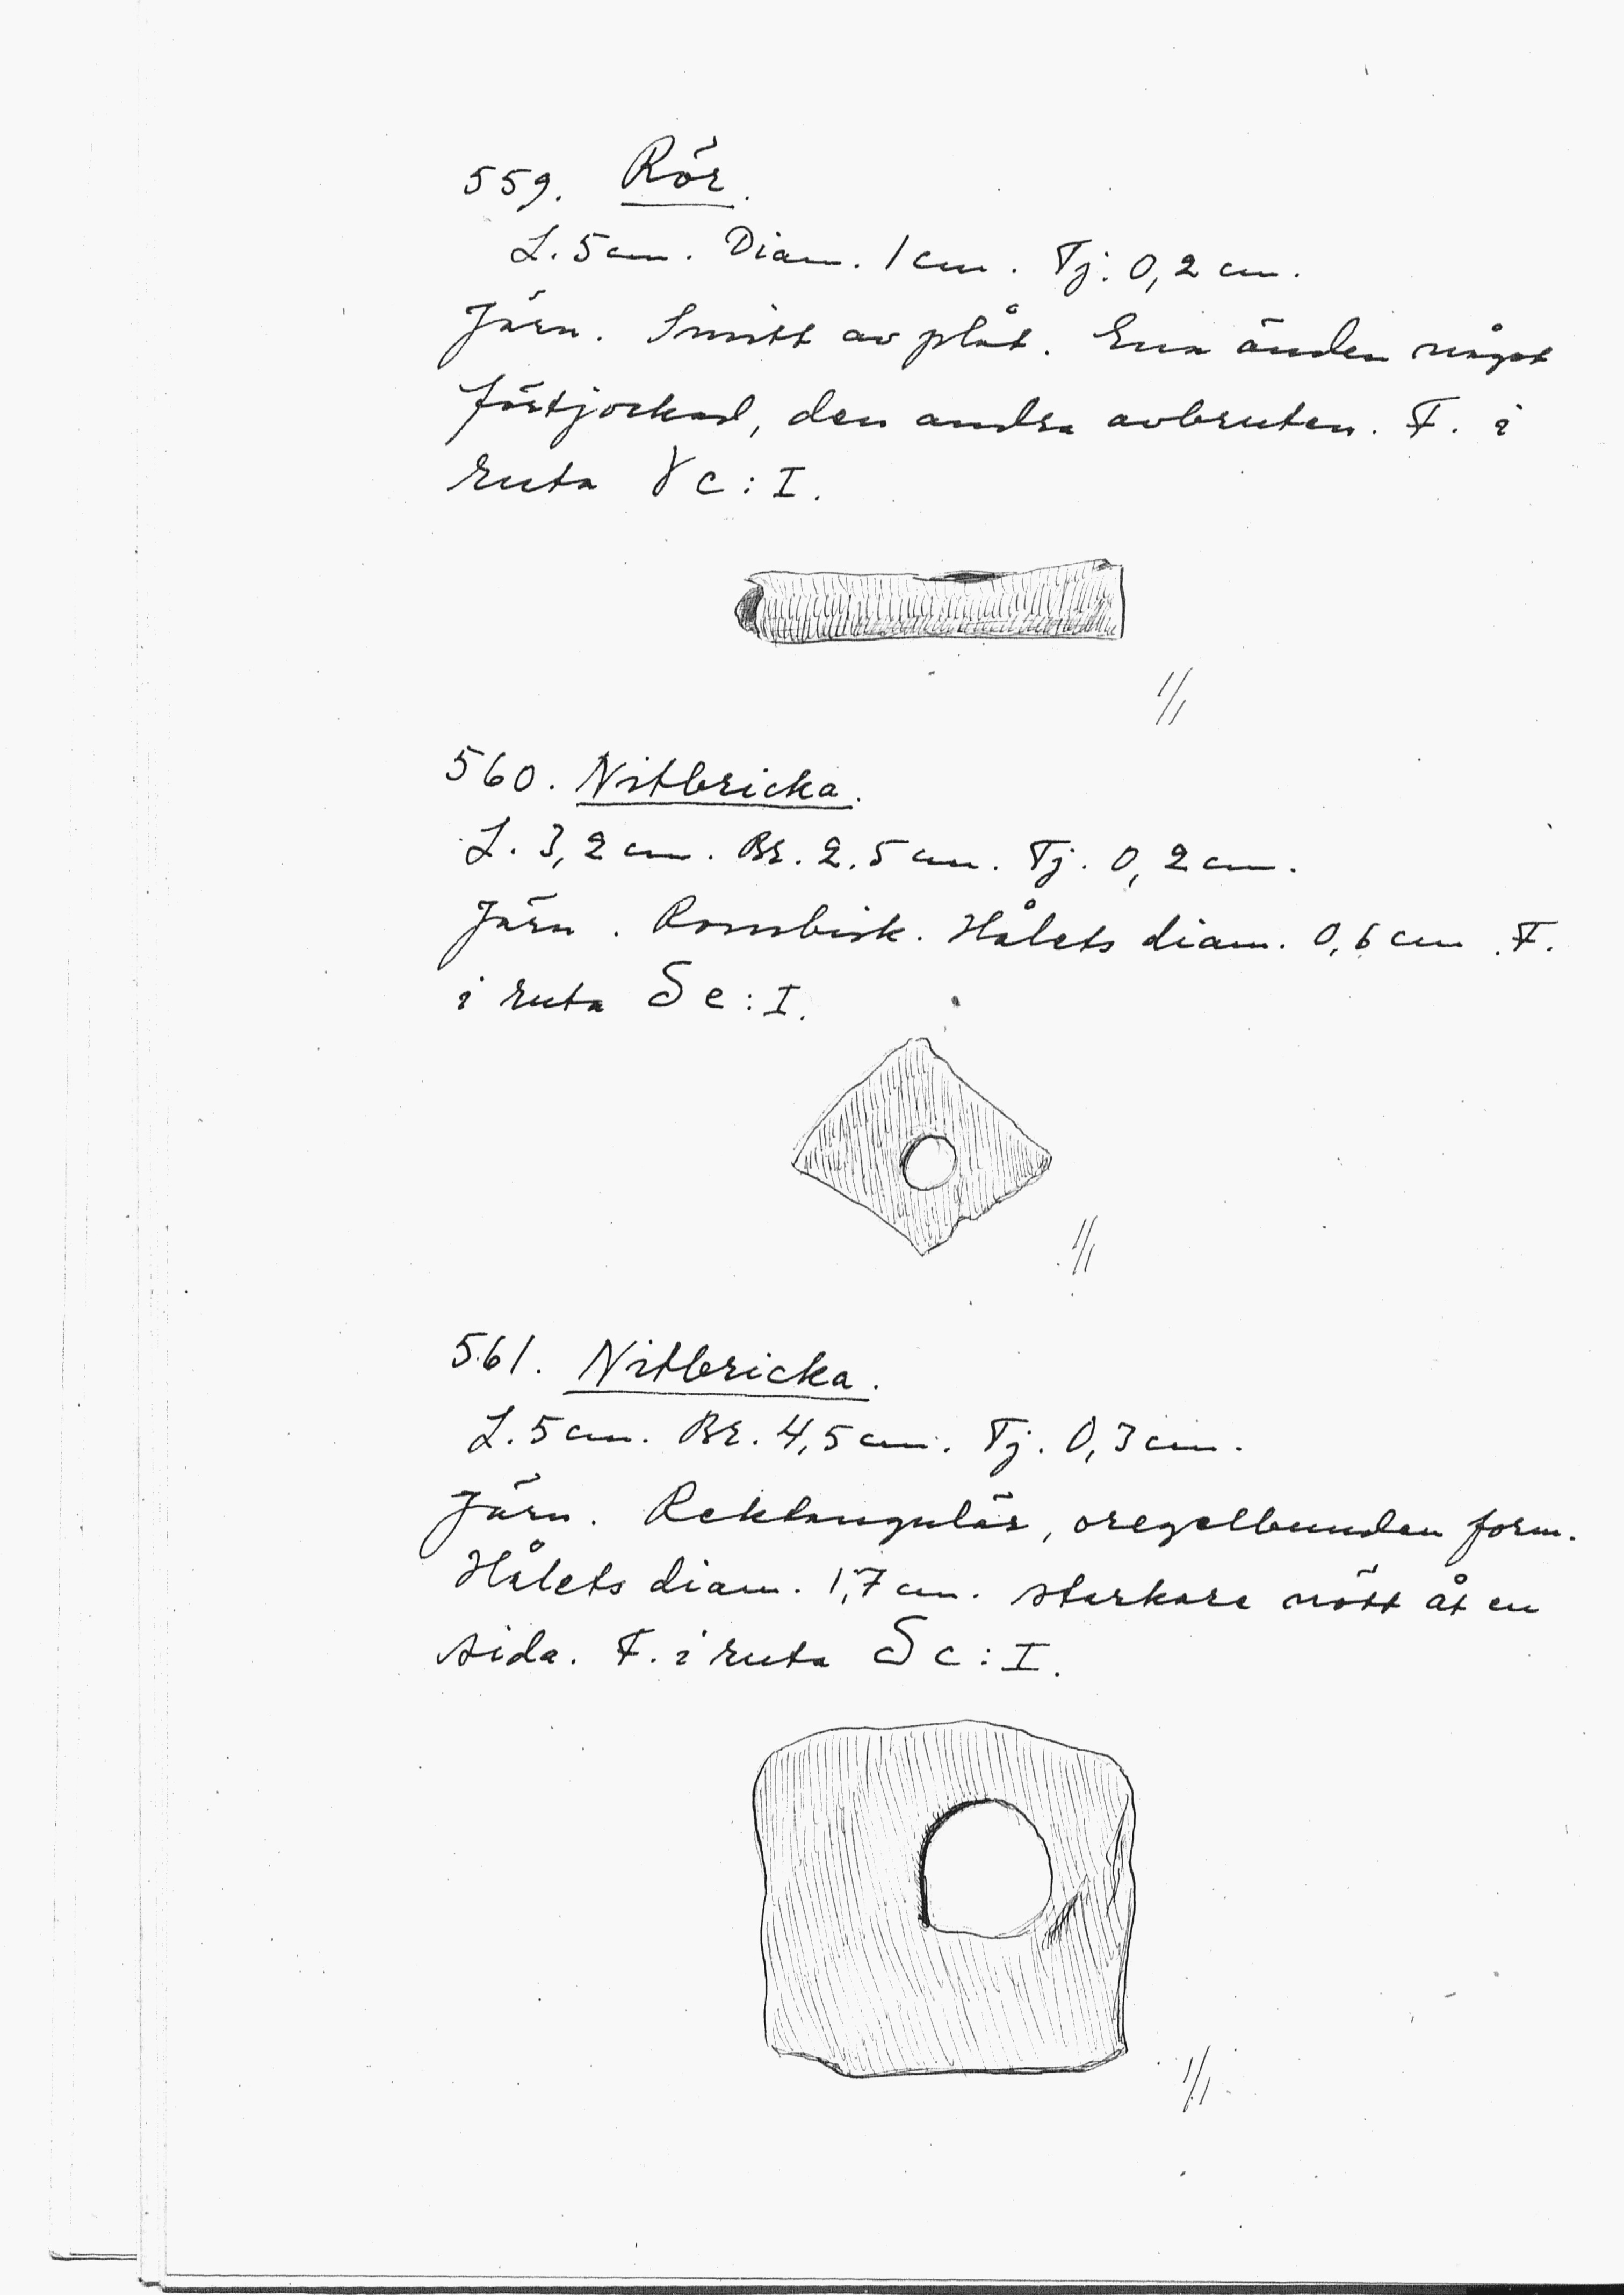 559. Rör.
L. 5 cm. Diam. 1 cm. Tj. 0,2 cm.
Järn. Smitt av plåt. Ena änden något
förtjockad, den andra avbruten. F. i
ruta γ c : I.
1/1
560. Nitbricka.
L. 3,2 cm. Br. 2,5 cm. Tj. 0,2 cm.
Järn. Rombisk. Hålets diam. 0,6 cm. F.
i ruta δ e : I.
1/1
561. Nitbricka.
L. 5 cm. Br. 4,5 cm. Tj. 0,3 cm.
Järn. Rektangulär, oregelbunden form.
Hålets diam. 1,7 cm. starkare nött åt en
sida. F. i ruta δ c : I.
1/1